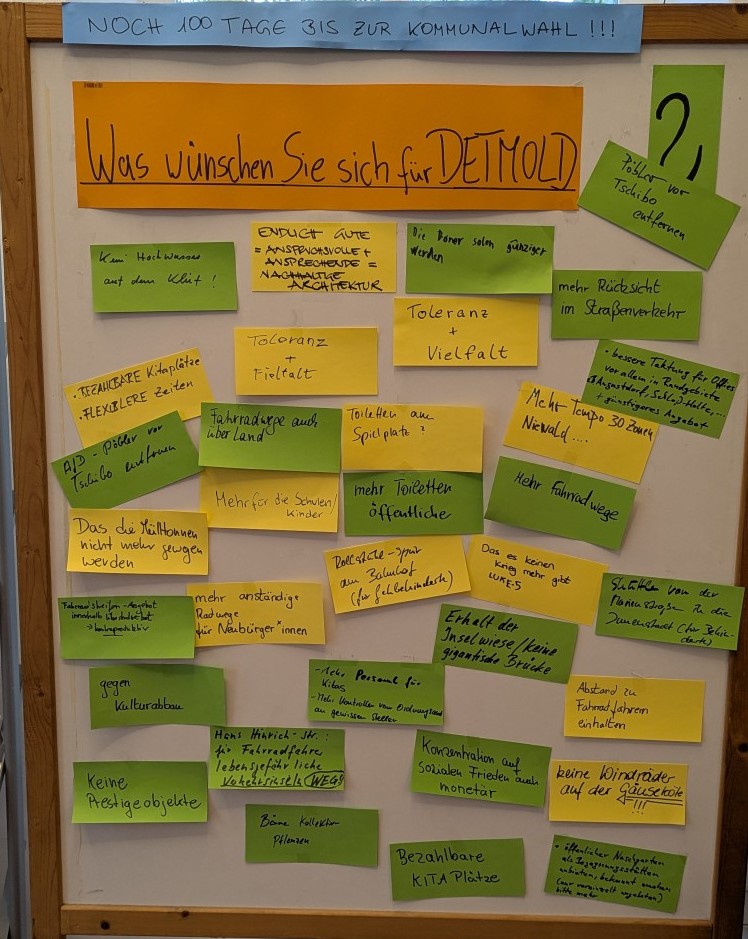 NOCH 100 TAGE BIS ZUR KOMMUNALWAHL !!!
Was wünschen Sie sich für DETMOLD
?
Pöbler vor
Tschibo
entfernen
Kein Hochwasser
auf dem Klüt !
ENDLICH GUTE
= ANSPRUCHSVOLLE +
ANSPRECHENDE =
NACHHALTIGE
ARCHITEKTUR
Die Döner solen günziger
werden
mehr Rücksicht
im Straßenverkehr
Toleranz
+
Fieltalt
Toleranz
+
Vielfalt
• bessere Taktung für Öffis
vor allem in Randgebiete
+ günstigeres Angebot
• BEZAHLBARE Kitaplätze
• FLEXIBLERE Zeiten
AfD - Pöbler vor
Tschibo entfernen
Fahrradwege auch
über Land
Toiletten am
Spielplatz ?
Mehr Tempo 30 Zonen
Niewald....
Mehr für die Schulen/
Kinder
mehr Toiletten
öffentliche
Mehr Fahrradwege
Das die Mülltonnen
nicht mehr gewogen
werden
am Bahnhof
(für Gehbehinderte)
Das es keinen
Krieg mehr gibt
LUKE-5
Shuttle von der
in die
Innenstadt (für Behin-
derte)
Fahrradstreifen - Angebot
innerhalb
→ kontraproduktiv
mehr anständige
Radwege
für Neubürger*innen
Erhalt der
Inselwiese/keine
gigantische Brücke
gegen
Kulturabbau
- Mehr Personal für
Kitas
- Mehr Kontrollen vom Ordnungsamt
an gewissen Stellen
Abstand zu
Fahrradfahrern
einhalten
Hans Hinrich-Str.:
für Fahrradfahrer
lebensgefährliche
Verkehrsinseln WEG!!
Keine
Prestigeobjekte
Konzentration auf
Sozialen Frieden auch
monetär
keine Windräder
auf der Gauseköte
!!!
Bäume
Pflanzen
Bezahlbare
KITA Plätze
• öffentlicher Naschgarten
als Begegnungsstätten
anbieten, bekannt machen
(nur vereinzelt
bitte mehr